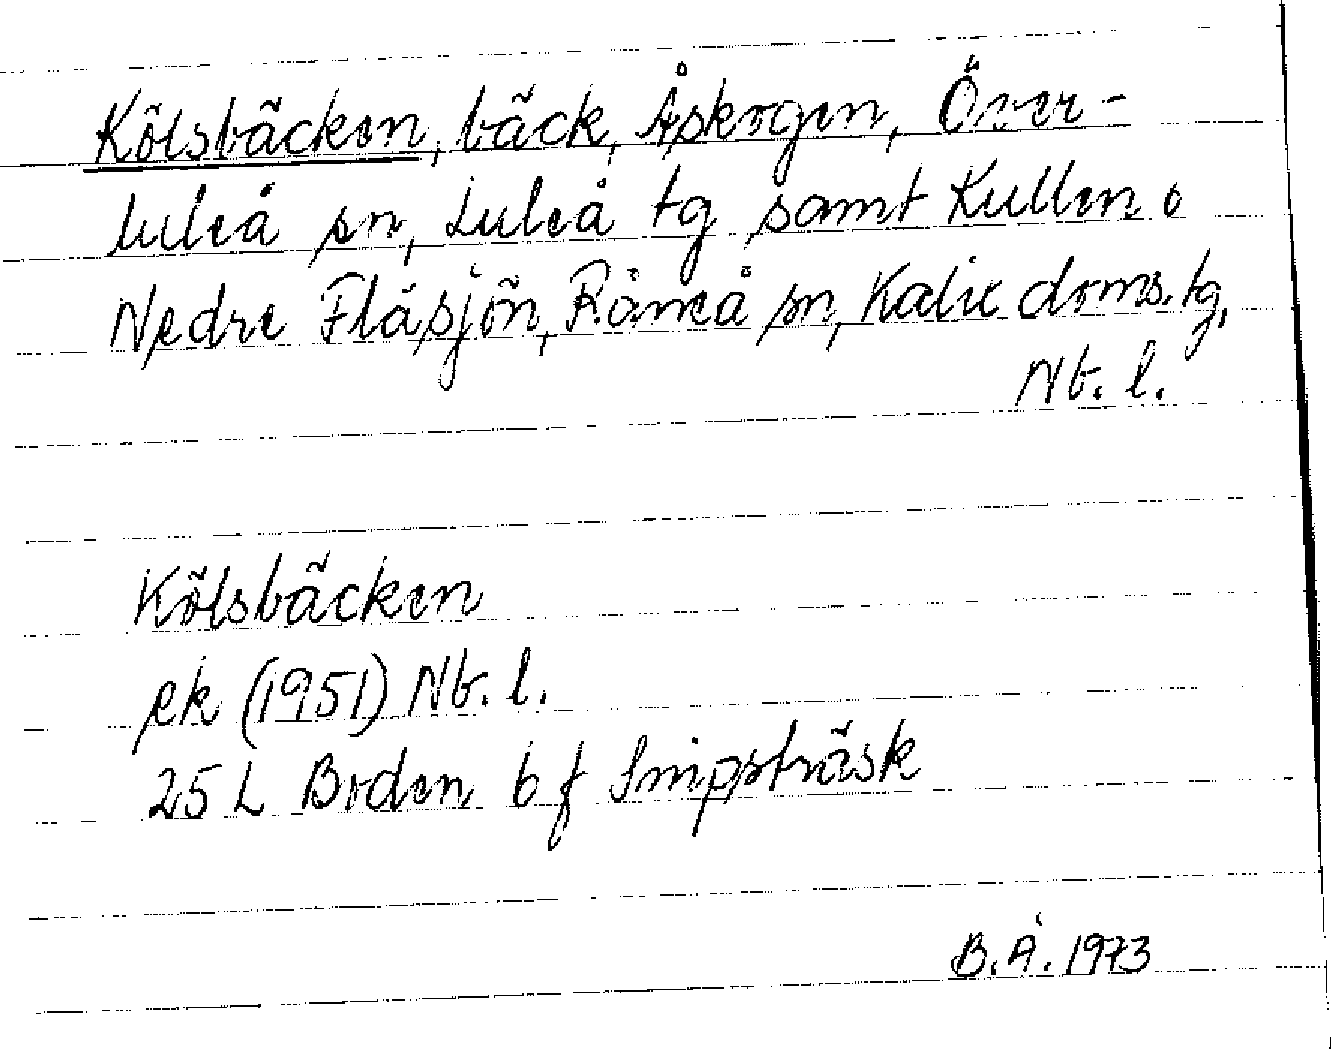 Kölsbäcken, bäck, Åskogen, Över-
luleå sn, Luleå tg samt Kullen o
Nedre Flåsjön, Råneå sn, Kalix doms. tg,
Nb. l.
Kölsbäcken
ek (1951) Nb. l.
25 L Boden b f Snippträsk
B.Å. 1973